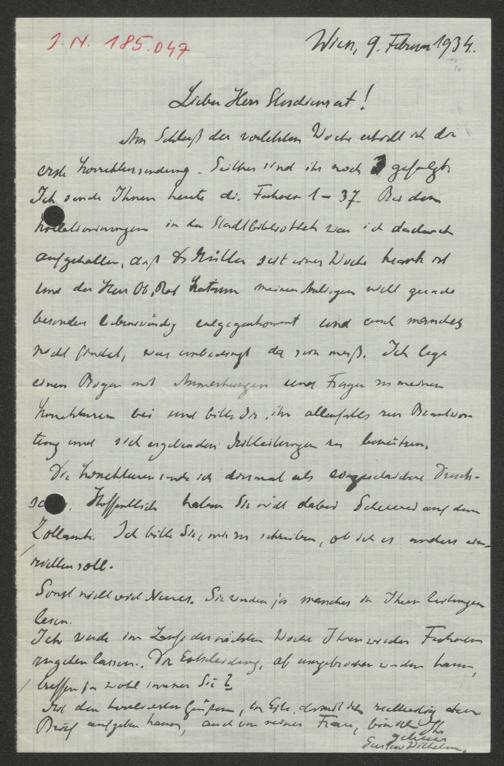 J. N. 185.047
Wien, 9. Februar 1934.
Lieber Herr Studienrat!
Am Schluß der vorletzten Woche erhielt ich die
erste Korrektursendung. Seither sind ihr noch 3 gefolgt.
Ich sende Ihnen heute die Fahnen 1–37. Bei den
Kollationierungen in der Stadtbibliothek war ich dadurch
aufgehalten, daß Dr. seit einer Woche krank ist
und der Herr Ob. Rat meinen Anliegen nicht gerade
besonders liebenswürdig entgegenkommt und auch manches
nicht findet, was unbedingt da sein muß. Ich lege
einen Bogen mit Anmerkungen und Fragen zu meinen
Korrekturen bei und bitte Sie, ihn allenfalls zur Beantwor-
tung und sich ergebenden Mitteilungen zu benützen.
Die Korrekturen sende ich diesmal als eingeschriebene Druck-
Hoffentlich haben Sie nicht dabei Scherereien auf dem
Zollamt. Ich bitte Sie, mir zu schreiben, ob ich es anders
soll.
Sonst nicht viel Neues. Sie werden ja manches in Ihren Zeitungen
lesen.
Ich werde im Laufe der nächsten Woche Ihnen wieder Fahnen
zugehen lassen. Die Entscheidung, ob umgebrochen werden kann,
treffen ja wohl immer Sie?
Mit den herzlichsten Grüßen, in Eile, damit ich rechtzeitig den
Brief aufgeben kann, auch von meiner Frau, bin ich Ihr
Gustav Wilhelm.